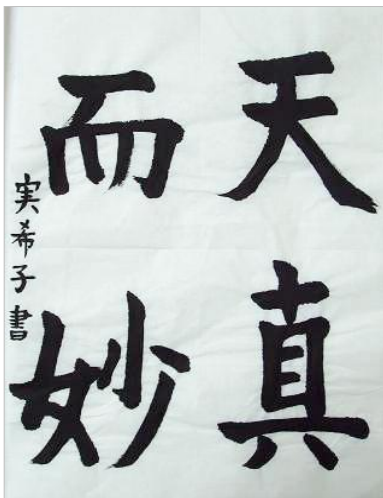 天真
而妙
実希子書